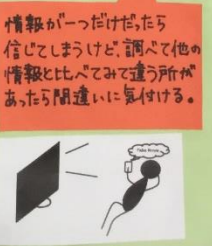 情報が一つだけだったら
信じてしまうけど、調べて他の
情報と比べてみて違う所が
あったら間違いに気付ける。